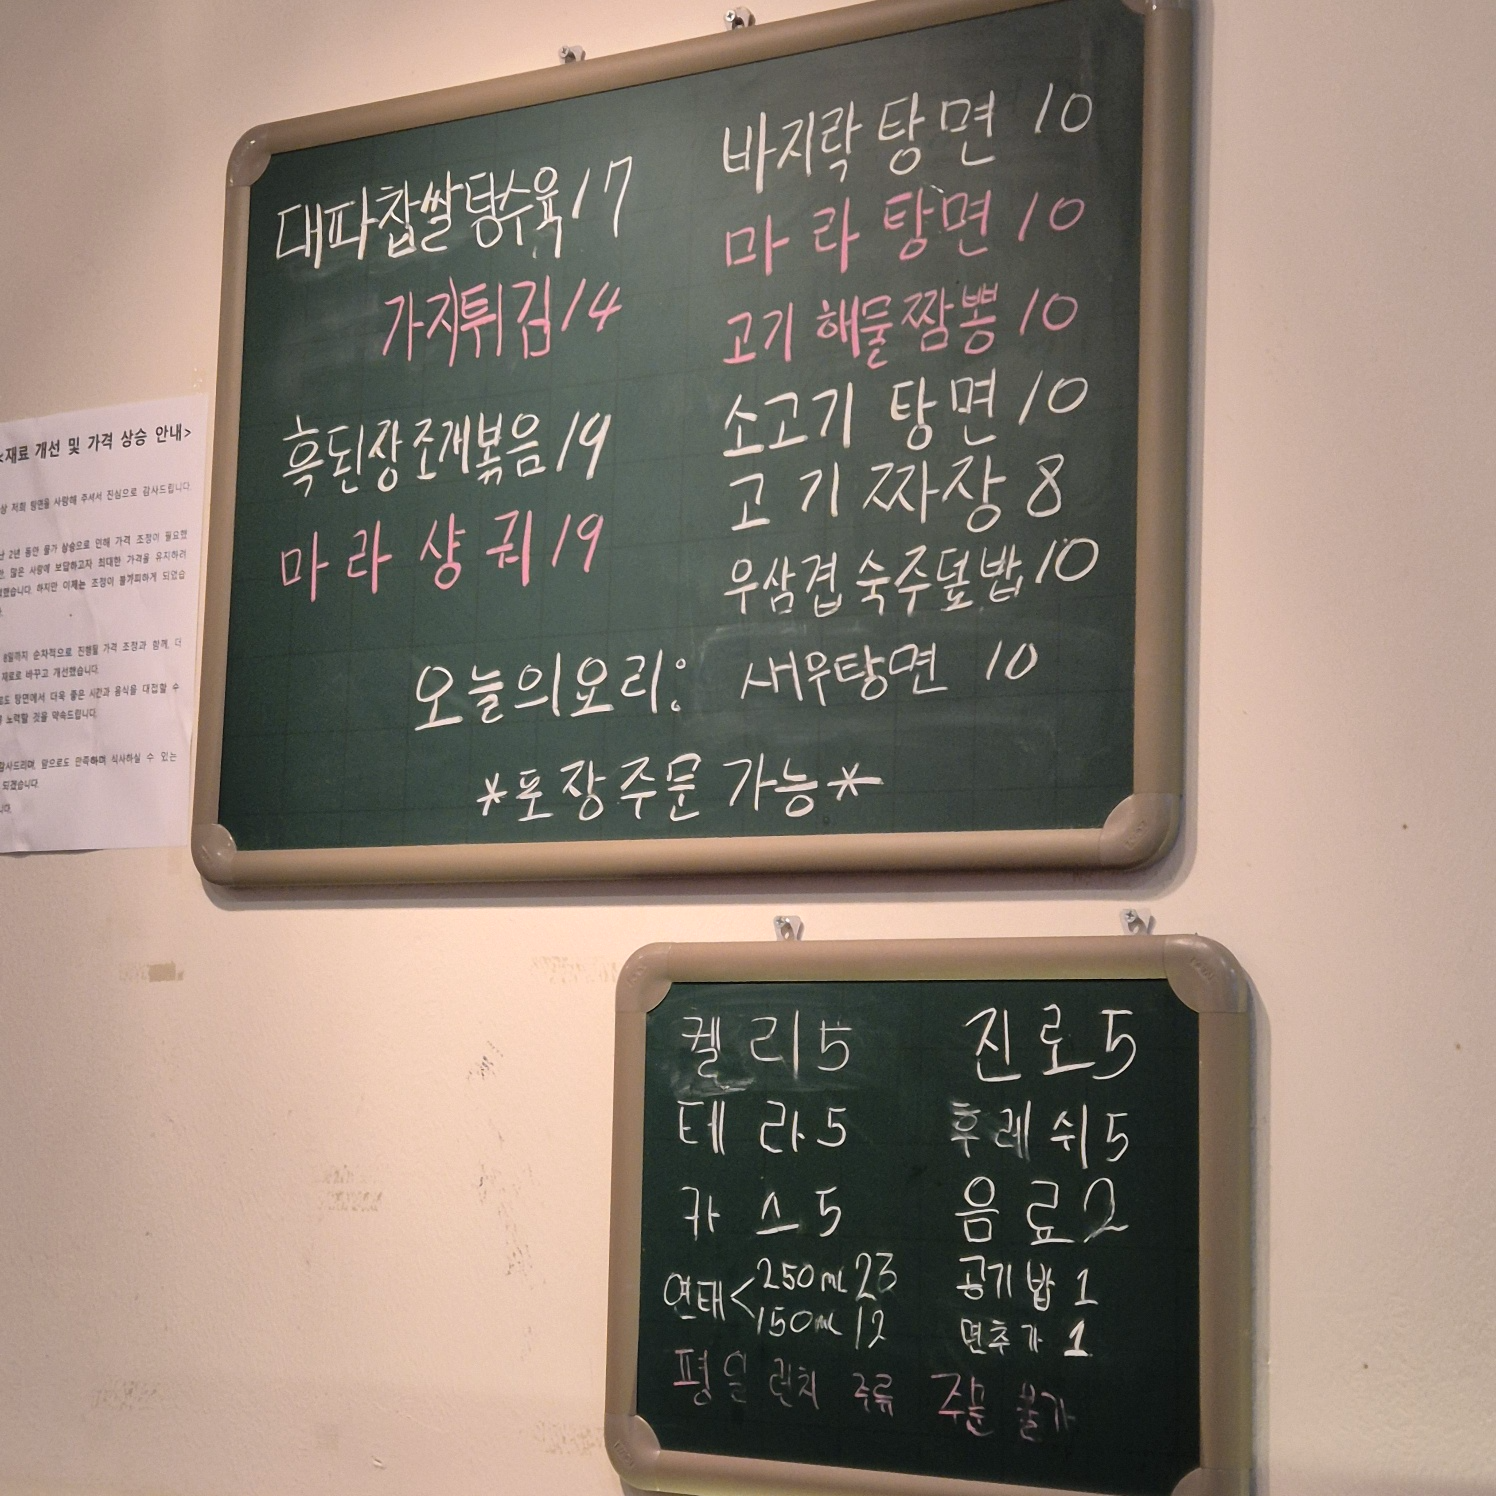 대파찹쌀탕수육 17
가지튀김 14
흑된장조개볶음 19
마라샹궈 19
바지락탕면 10
마라탕면 10
고기해물짬뽕 10
소고기 탕면 10
고기짜장 8
우삼겹숙주덮밥 10
오늘의요리: 새우탕면 10
*포장주문 가능*
켈리 5
테라 5
카스 5
연태< 250ml 23
150ml 12
진로 5
후레쉬 5
음료 2
공기밥 1
면추가 1
평일 런치 주류 주문 불가
<재료 개선 및 가격 상승 안내>
상 저희 탕면을 사랑해 주셔서 진심으로 감사드립니다.
2년 동안 물가 상승으로 인해 가격 조정이 필요했
많은 사랑에 보답하고자 최대한 가격을 유지하려
했습니다. 하지만 이제는 조정이 불가피하게 되었습
8일까지 순차적으로 진행될 가격 조정과 함께, 더
재료로 바꾸고 개선했습니다.
도 탕면에서 더욱 좋은 시간과 음식을 대접할 수
노력할 것을 약속드립니다.
감사드리며, 앞으로도 만족하며 식사하실 수 있는
되겠습니다.
니다.